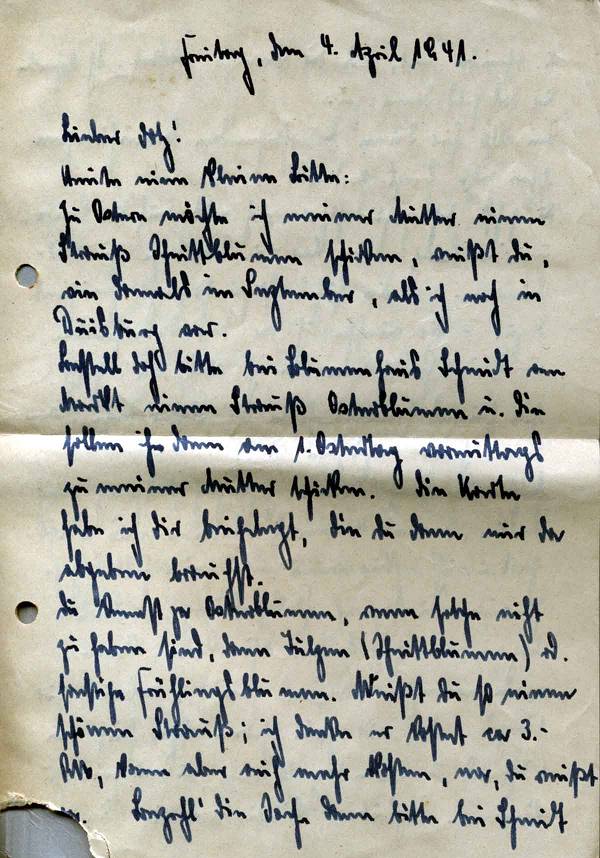 Freitag, den 4. April 1941.
Lieber Dotz!
Heute eine kleine Bitte:
Zu Ostern möchte ich meiner Mutter einen
Strauß Schnittblumen schicken, weißt du,
wie damals im September, als ich noch in
Duisburg war.
Bestell doch bitte bei Blumenhaus Schmidt am
Markt einen Strauß Osterblumen u. die
sollen ihn dann am 1. Ostertag vormittags
zu meiner Mutter schicken. Die Karte
habe ich dir beigelegt, die du dann nur da
abgeben brauchst.
Du kennst ja Osterblumen, wenn solche nicht
zu haben sind, dann Tulpen (Schnittblumen) od.
sonstige Frühlingsblumen. Weißt Du so einen
schönen Strauß; ich denke er kostet ca 3.-
RM, kann aber auch mehr kosten, na, du weißt
ja. Bezahl' die Sache dann bitte bei Schmidt